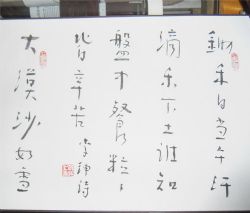 鋤禾日当午汗
滴禾下土誰知
盤中餐粒々
皆辛苦 李紳詩
大漠沙如雪